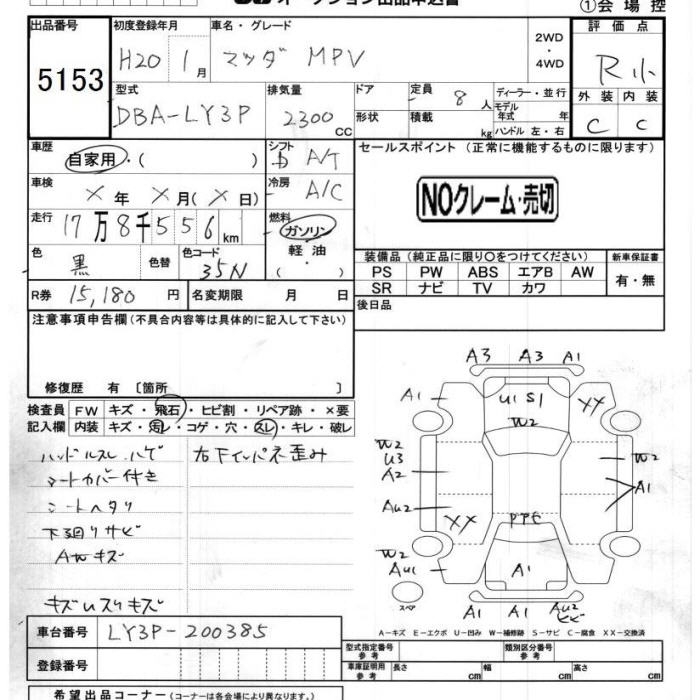 オークション出品申込書
①会場控
出品番号 初度登録年月 車名・グレード 2WD ・ 4WD 評価点
5153 H20 1月 マツダ MPV R小
型式 排気量 ドア 定員 8人 ディーラー・並行 外装 内装
DBA-LY3P 2300cc 形状 積載 kg モデル年式 年 ハンドル 左・右 C C
車歴 自家用・( ) シフト A/T セールスポイント (正常に機能するものに限ります)
車検 X年 X月(X日) 冷房 A/C NOクレーム・売切
走行 17万8千556km 燃料 ガソリン・軽油・( )
色 黒 色替 色コード 35N
装備品 (純正品に限り○をつけてください) 新車保証書
PS PW ABS エアB AW 有・無
SR ナビ TV カワ
R券 15,180円 名変期限 月 日 後日品
注意事項申告欄 (不具合内容等は具体的に記入して下さい)
修復歴 有 〔箇所 〕
検査員 FW キズ・飛石・ヒビ割・リペア跡・×要
記入欄 内装 キズ・汚レ・コゲ・穴・スレ・キレ・破レ
ハンドルスレ.ハゲ 右下インパネ歪み
シートカバー付き
シートヘタリ
下廻りサビ
AWキズ
キズUスリキズ
A3 A3 A1
A1 U1 S1 XX
W2
W2 U3 A2 W2
A1
AU2 XX
W2 AU1
A1
スペア
A1 A1 AU2
A-キズ E-エクボ U-凹み W-補修跡 S-サビ C-腐食 XX-交換済
車台番号 LY3P-200385
型式指定番号 参考 類別区分番号 参考
登録番号 車庫証明用 参考 長さ cm 幅 cm 高さ cm
希望出品コーナー (コーナーは各会場により異なります。)